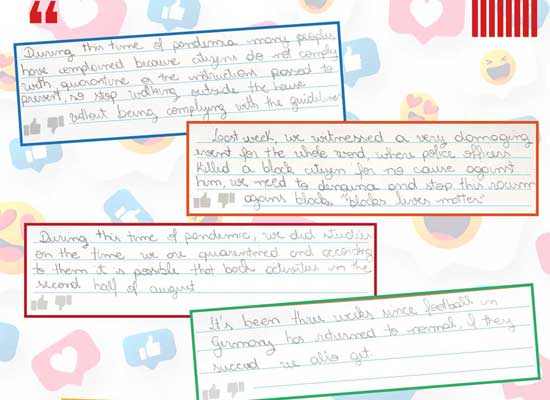 During this time of pandemia many people
have complained because citizens do not comply
with quarantine or the instructions passed to
prevent, so stop walking outside the house
without being complying with the guidelines
Last week, we witnessed a very damaging
event for the whole word, where police officers
killed a black citizen for no cause against
him, we need to denguna and stop this racism
agains blacks "blacks lives matter"
During this time of pandemic, we did studies
on the time we are quarantined and according
to them it is possible that back activities in the
second half of august
It's been three weeks since football in
Germany has returned to normal, if they
succed we also get.